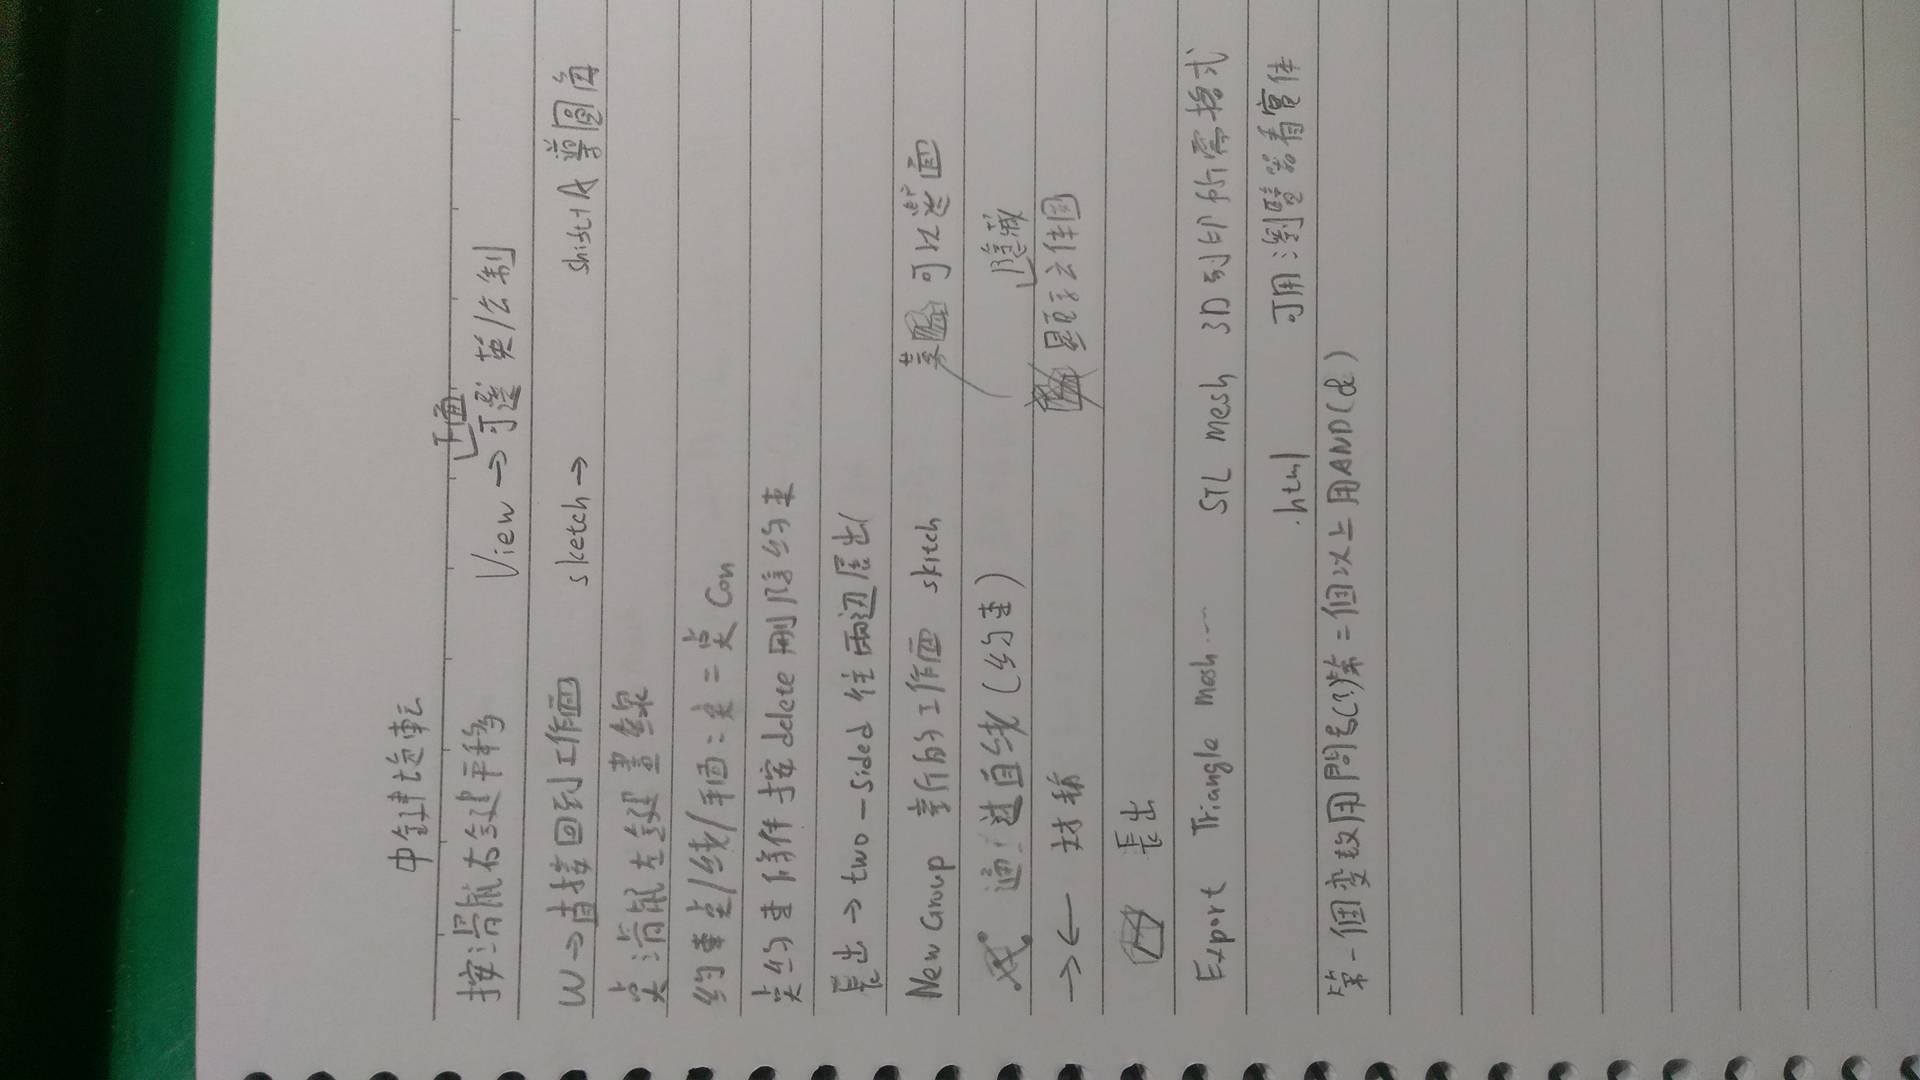 中鍵旋轉
下面
按滑鼠右鍵平移 View → 可選英/公制
W→直接回到工作面 sketch → shift+A 導圓角
点滑鼠左鍵畫線
約束点/线/平面:点=点 Con
点約束條件按delete刪除約束
長出→two-sided 往兩边長出
New Group 新的工作面 skitch 可以選面
通:过直线(約束) 隱藏
→← 对称 顯示立体图
長出
Export Triangle mesh... STL mesh 3D列印所需格式
.html 可用瀏覽器看實体
第一個変数用問号(?)第二個以上用AND(&)